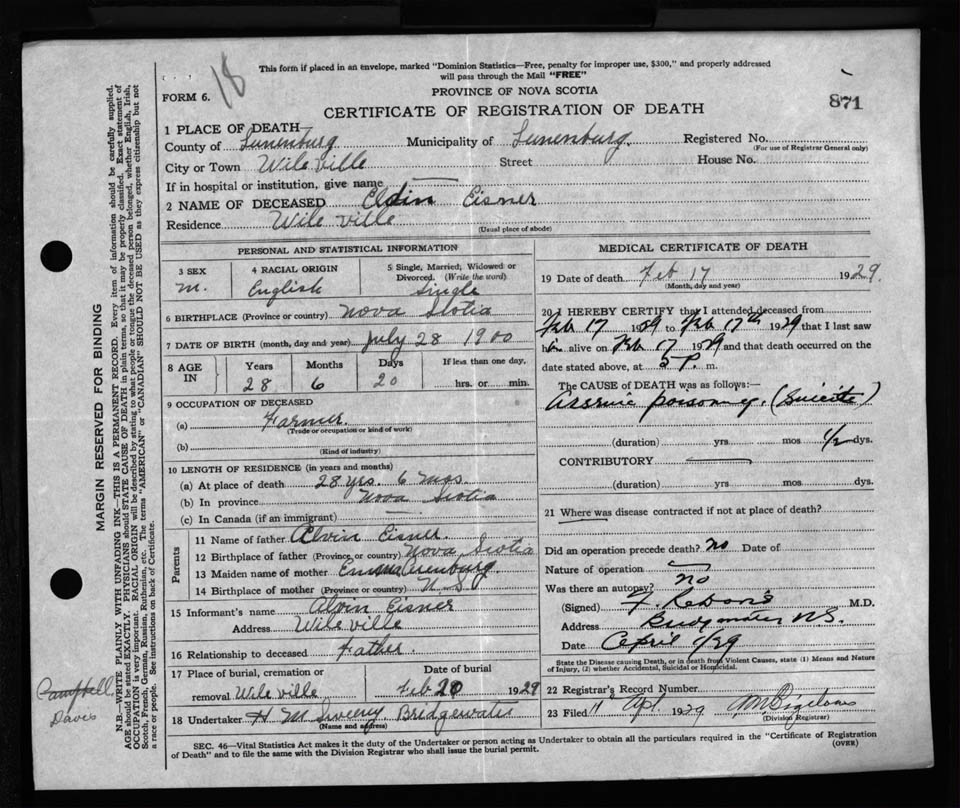 18
This form if placed in an envelope, marked "Dominion Statistics—Free, penalty for improper use, $300," and properly addressed
will pass through the Mail "FREE"
FORM 6.
PROVINCE OF NOVA SCOTIA
CERTIFICATE OF REGISTRATION OF DEATH
871
1 PLACE OF DEATH
County of Lunenburg Municipality of Lunenburg Registered No.
(For use of Registrar General only)
City or Town Wile Ville Street House No.
If in hospital or institution, give name —
2 NAME OF DECEASED Elvin Eisner
Residence Wile Ville
(Usual place of abode)
PERSONAL AND STATISTICAL INFORMATION
3 SEX 4 RACIAL ORIGIN 5 Single, Married, Widowed or
Divorced. (Write the word)
M. English Single
6 BIRTHPLACE (Province or country) Nova Scotia
7 DATE OF BIRTH (month, day and year) July 28 1900
8 AGE IN Years Months Days If less than one day,
28 6 20 hrs. or min.
9 OCCUPATION OF DECEASED
(a) Farmer.
(Trade or occupation or kind of work)
(b)
(Kind of industry)
10 LENGTH OF RESIDENCE (in years and months)
(a) At place of death 28 yrs. 6 mos.
(b) In province Nova Scotia
(c) In Canada (if an immigrant) —
Parents
11 Name of father Alvin Eisner.
12 Birthplace of father (Province or country) Nova Scotia
13 Maiden name of mother Emma
14 Birthplace of mother (Province or country) N. S.
15 Informant's name Alvin Eisner
Address Wile ville
16 Relationship to deceased Father.
17 Place of burial, cremation or Date of burial
removal Wile ville Feb 20 1929
18 Undertaker H M Sweeny Bridgewater
(Name and address)
MEDICAL CERTIFICATE OF DEATH
19 Date of death Feb 17 1929.
(Month, day and year)
20 I HEREBY CERTIFY that I attended deceased from
Feb 17 1929 to Feb 17th 1929 that I last saw
h alive on Feb 17 1929 and that death occurred on the
date stated above, at 5 P. m.
The CAUSE OF DEATH was as follows:—
(Suicide)
(duration) yrs mos 1/2 dys.
CONTRIBUTORY —
(duration) yrs. mos. dys.
21 Where was disease contracted if not at place of death?
Did an operation precede death? No Date of
Nature of operation —
Was there an autopsy? No
(Signed) M.D.
Address N.S.
Date April 1/29
State the Disease causing Death, or in death from Violent Causes, state (1) Means and Nature
of Injury, (2) whether Accidental, Suicidal or Homicidal.
22 Registrar's Record Number
23 Filed 11 Apl 1929
(Division Registrar)
SEC. 46—Vital Statistics Act makes it the duty of the Undertaker or person acting as Undertaker to obtain all the particulars required in the "Certificate of Registration
of Death" and to file the same with the Division Registrar who shall issue the burial permit. (OVER)
MARGIN RESERVED FOR BINDING
N.B.—WRITE PLAINLY WITH UNFADING INK—THIS IS A PERMANENT RECORD. Every item of information should be carefully supplied.
AGE should be stated EXACTLY. PHYSICIANS should STATE CAUSE OF DEATH in plain terms, so that it may be properly classified. Exact statement of
OCCUPATION is very important. RACIAL ORIGIN will be described by stating to what people or tongue the deceased person belonged, whether English, Irish,
Scotch, French, German, Russian, Ruthenian, etc. The terms "AMERICAN" or "CANADIAN" SHOULD NOT BE USED as they express citizenship but not
a race or people. See instructions on back of Certificate.
Campbell,
Davis